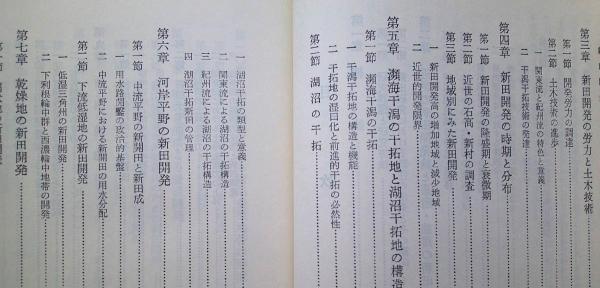 第三章 新田開発の労力と土木技術
第一節 開発労力の調達
第二節 土木技術の進歩
一 関東流と紀州流の特色と意義
二 干潟干拓技術の発達
第四章 新田開発の時期と分布
第一節 新田開発の隆盛期と衰微期
第二節 近世の石高・新村の調査
第三節 地域別にみた新田開発
一 新田開発高の増加地域と減少地域
二 近世的開発限界
第五章 瀕海干潟の干拓地と湖沼干拓地の構造
第一節 瀕海干潟の干拓
一 干潟干拓地の構造と機能
二 干拓地の湿田化と前進的干拓の必然性
第二節 湖沼の干拓
一 湖沼干拓の類型と意義
二 関東流による湖沼の干拓構造
三 紀州流による湖沼の干拓構造
四 湖沼干拓新田の管理
第六章 河岸平野の新田開発
第一節 中流平野の新開田と新田成
一 用水路開鑿の政治的基盤
二 中流平野における新開田の用水分配
第二節 下流低湿地の新田開発
一 低湿三角州の新田開発
二 下利根輪中群と西濃輪中地帯の開発
第七章 乾燥地の新田開発